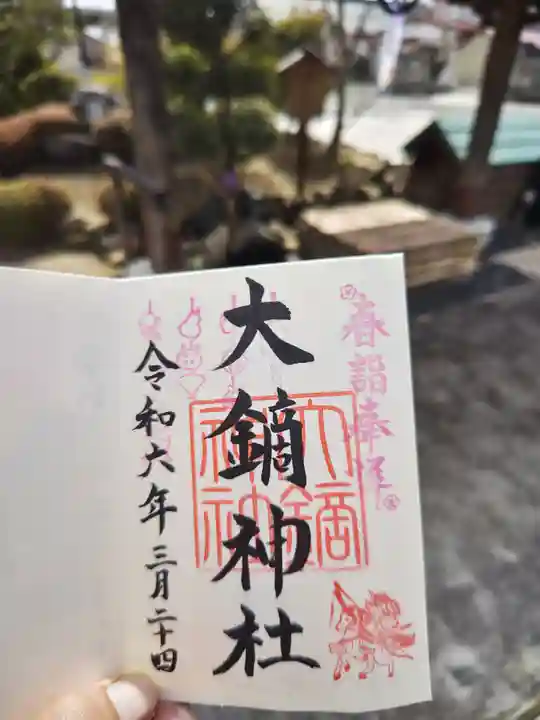 春詣奉拝
大鏑神社
令和六年三月二十四